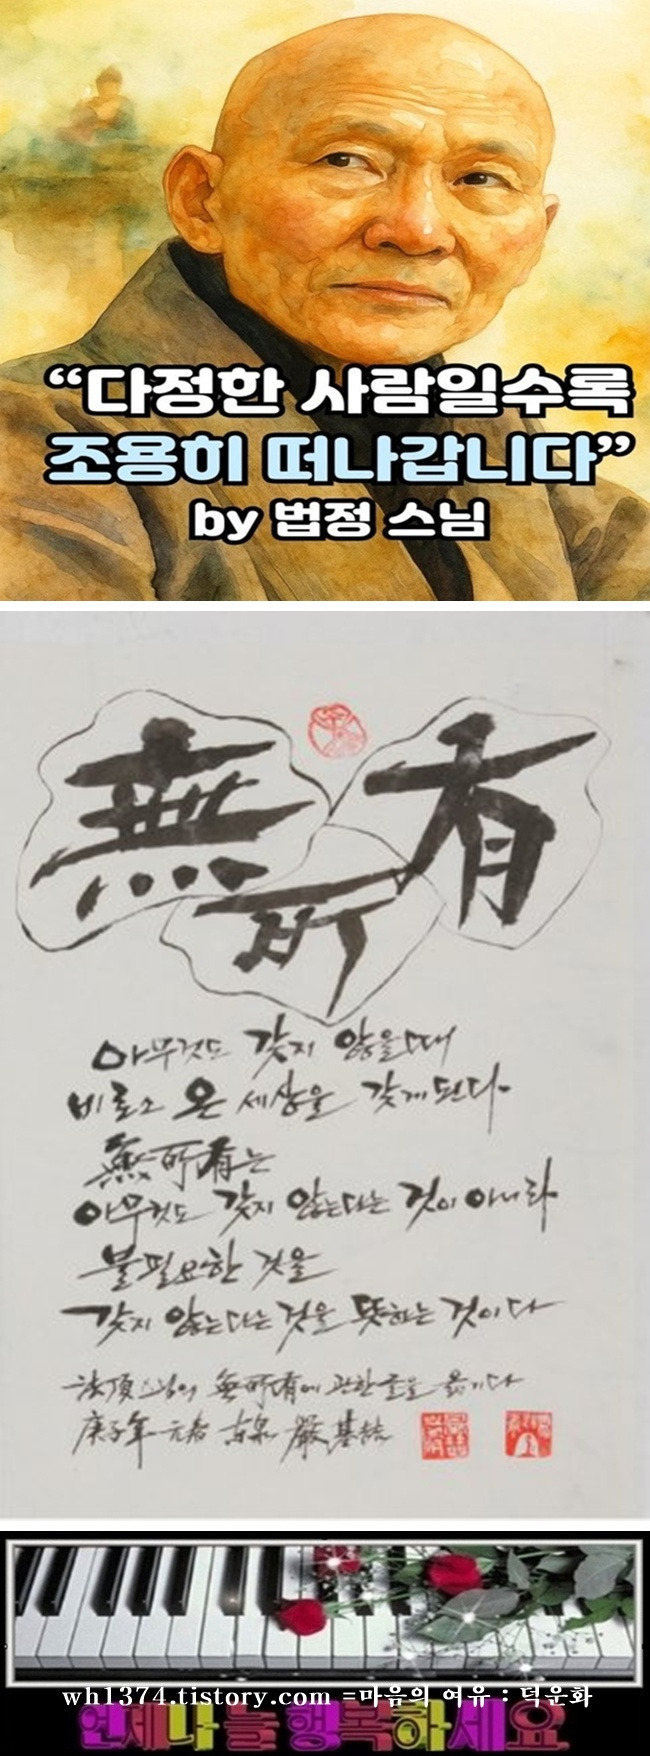 “다정한 사람일수록
조용히 떠나갑니다”
by 법정 스님
無所有
아무것도 갖지 않을 때
비로소 온 세상을 갖게 된다
無所有는
아무것도 갖지 않는다는 것이 아니라
불필요한 것을
갖지 않는다는 것을 뜻하는 것이다
法頂스님의 無所有에 관한 글을 옮기다
庚子年 元春 古泉 嚴基喆
wh1374.tistory.com =마음의 여유 : 덕운화
언제나 늘 행복하세요